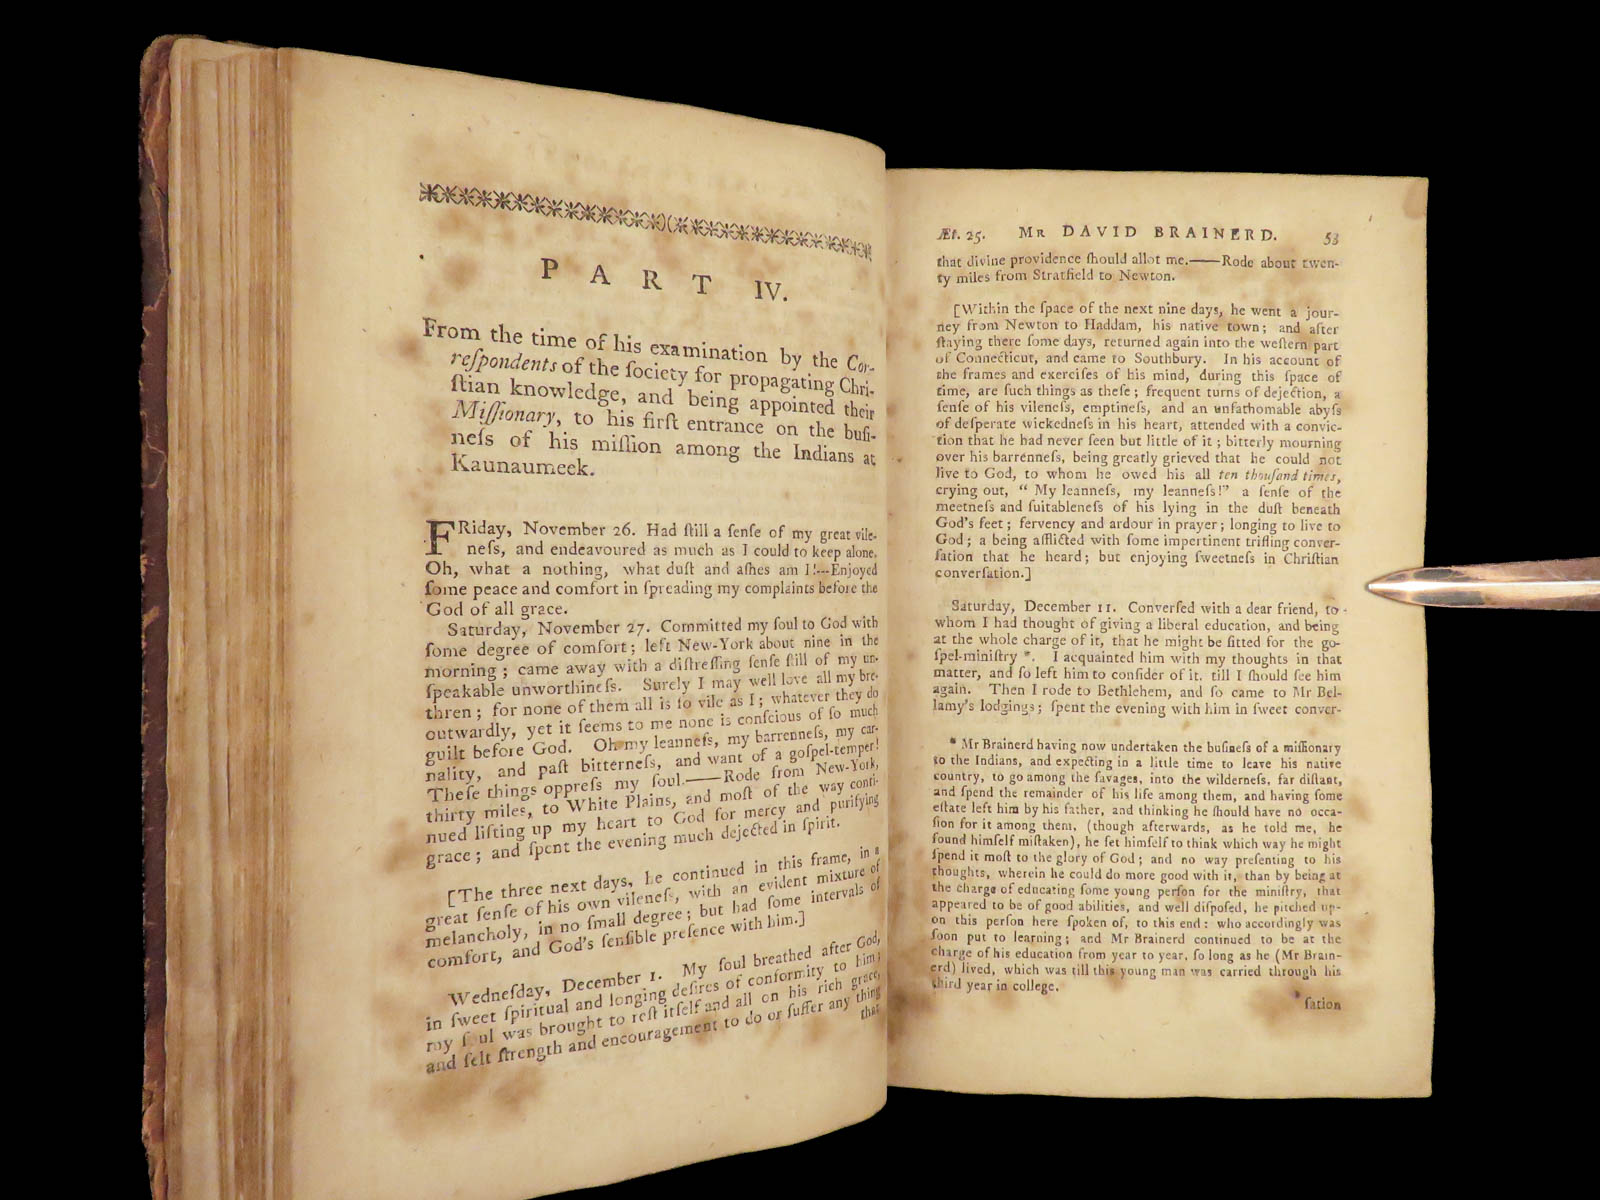 PART IV.
From the time of his examination by the Cor-
reſpondents of the ſociety for propagating Chri-
ſtian knowledge, and being appointed their
Miſſionary, to his firſt entrance on the buſi-
neſs of his miſſion among the Indians at
Kaunaumeek.
FRiday, November 26. Had ſtill a ſenſe of my great vile-
neſs, and endeavoured as much as I could to keep alone.
Oh, what a nothing, what duſt and aſhes am I!---Enjoyed
ſome peace and comfort in ſpreading my complaints before the
God of all grace.
Saturday, November 27. Committed my ſoul to God with
ſome degree of comfort; left New-York about nine in the
morning; came away with a diſtreſſing ſenſe ſtill of my un-
ſpeakable unworthineſs. Surely I may well love all my bre-
thren; for none of them all is ſo vile as I; whatever they do
outwardly, yet it ſeems to me none is conſcious of ſo much
guilt before God. Oh my leanneſs, my barrenneſs, my car-
nality, and paſt bitterneſs, and want of a goſpel-temper!
Theſe things oppreſs my ſoul.——Rode from New-York,
thirty miles, to White Plains, and moſt of the way conti-
nued lifting up my heart to God for mercy and purifying
grace; and ſpent the evening much dejected in ſpirit.
[The three next days, he continued in this frame, in a
great ſenſe of his own vileneſs, with an evident mixture of
melancholy, in no ſmall degree; but had ſome intervals of
comfort, and God's ſenſible preſence with him.]
Wedneſday, December 1. My ſoul breathed after God,
in ſweet ſpiritual and longing deſires of conformity to him;
my ſ ul was brought to reſt itſelf and all on his rich grace,
and felt ſtrength and encouragement to do or ſuffer any thing
that
Æt. 25. MR DAVID BRAINERD. 53
that divine providence ſhould allot me.——Rode about twen-
ty miles from Stratfield to Newton.
[Within the ſpace of the next nine days, he went a jour-
ney from Newton to Haddam, his native town; and after
ſtaying there ſome days, returned again into the weſtern part
of Connecticut, and came to Southbury. In his account of
the frames and exerciſes of his mind, during this ſpace of
time, are ſuch things as theſe; frequent turns of dejection, a
ſenſe of his vileneſs, emptineſs, and an unfathomable abyſs
of deſperate wickedneſs in his heart, attended with a convic-
tion that he had never ſeen but little of it; bitterly mourning
over his barrenneſs, being greatly grieved that he could not
live to God, to whom he owed his all ten thouſand times,
crying out, “ My leanneſs, my leanneſs!” a ſenſe of the
meetneſs and ſuitableneſs of his lying in the duſt beneath
God's feet; fervency and ardour in prayer; longing to live to
God; a being afflicted with ſome impertinent trifling conver-
ſation that he heard; but enjoying ſweetneſs in Chriſtian
converſation.]
Saturday, December 11. Converſed with a dear friend, to
whom I had thought of giving a liberal education, and being
at the whole charge of it, that he might be fitted for the go-
ſpel-miniſtry *. I acquainted him with my thoughts in that
matter, and ſo left him to conſider of it, till I ſhould ſee him
again. Then I rode to Bethlehem, and ſo came to Mr Bel-
lamy's lodgings; ſpent the evening with him in ſweet conver-
* Mr Brainerd having now undertaken the buſineſs of a miſſionary
to the Indians, and expecting in a little time to leave his native
country, to go among the ſavages, into the wilderneſs, far diſtant,
and ſpend the remainder of his life among them, and having ſome
eſtate left him by his father, and thinking he ſhould have no occa-
ſion for it among them, (though afterwards, as he told me, he
found himſelf miſtaken), he ſet himſelf to think which way he might
ſpend it moſt to the glory of God; and no way preſenting to his
thoughts, wherein he could do more good with it, than by being at
the charge of educating ſome young perſon for the miniſtry, that
appeared to be of good abilities, and well diſpoſed, he pitched up-
on this perſon here ſpoken of, to this end: who accordingly was
ſoon put to learning; and Mr Brainerd continued to be at the
charge of his education from year to year, ſo long as he (Mr Brain-
erd) lived, which was till this young man was carried through his
third year in college.
ſation